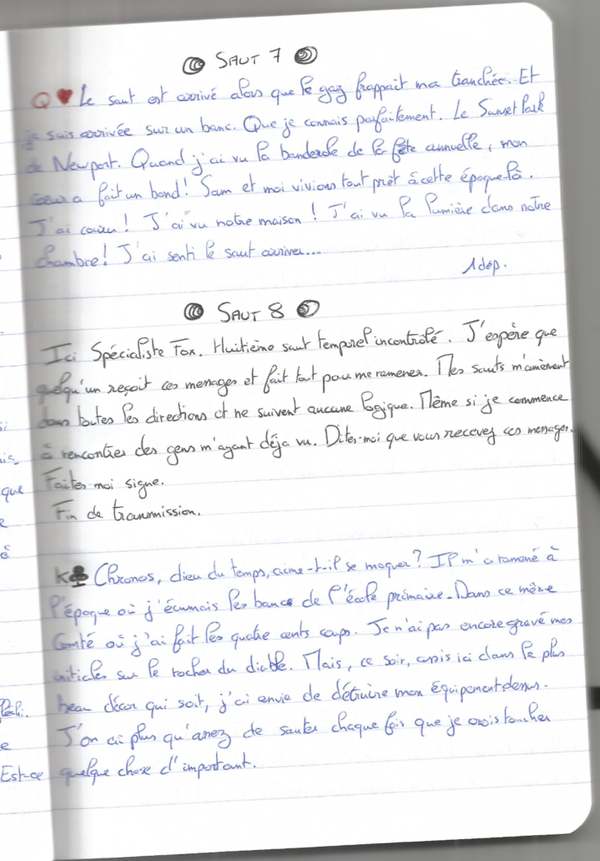 SAUT 7
Q ♥ Le saut est arrivé alors que le gaz frappait ma tranchée. Et
je suis arrivée sur un banc. Que je connais parfaitement. Le Sunset Park
de Newport. Quand j'ai vu la banderole de la fête annuelle, mon
cœur a fait un bond! Sam et moi vivions tout prêt à cette époque là.
J'ai couru! J'ai vu notre maison! J'ai vu la lumière dans notre
chambre! J'ai senti le saut arriver...
1 dép.
SAUT 8
Ici Spécialiste Fox. Huitième saut temporel incontrôlé. J'espère que
quelqu'un reçoit ces messages et fait tout pour me ramener. Mes sauts m'amènent
dans toutes les directions et ne suivent aucune logique. Même si je commence
à rencontrer des gens m'ayant déjà vu. Dites-moi que vous recevez ces messages.
Faites-moi signe.
Fin de transmission.
K♣ Chronos, dieu du temps, aime-t-il se moquer? Il m'a ramené à
l'époque où j'écumais les bancs de l'école primaire. Dans ce même
Comté où j'ai fait les quatre cents coups. Je n'ai pas encore gravé mes
initiales sur le rocher du diable. Mais, ce soir, assis ici dans le plus
beau décor qui soit, j'ai envie de détruire mon équipement
J'en ai plus qu'assez de sauter chaque fois que je crois toucher
quelque chose d'important.
que
Est-ce